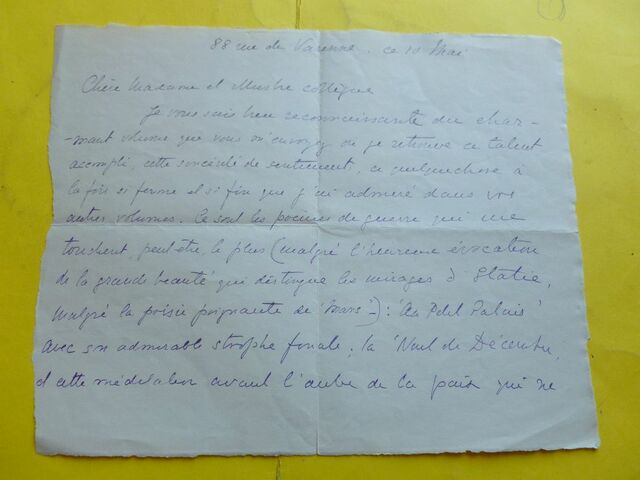 88 rue de Varenne. ce 10 Mai
Chère Madame et Illustre collègue
Je vous suis bien reconnaissante du char-
-mant volume que vous m'envoyez où je retrouve ce talent
accompli, cette sincérité de sentiment, ce quelquechose à
la fois si ferme et si fin que j'ai admiré dans vos
autres volumes. Ce sont les poèmes de guerre qui me
touchent, peut-être, le plus (malgré l'heureuse évocation
de la grande beauté qui distingue les mirages d'Italie,
malgré la poésie poignante de "Mars") : "Au Petit Palais"
avec son admirable strophe finale, la "Nuit de Décembre,
et cette méditation avant l'aube de la paix qui ne